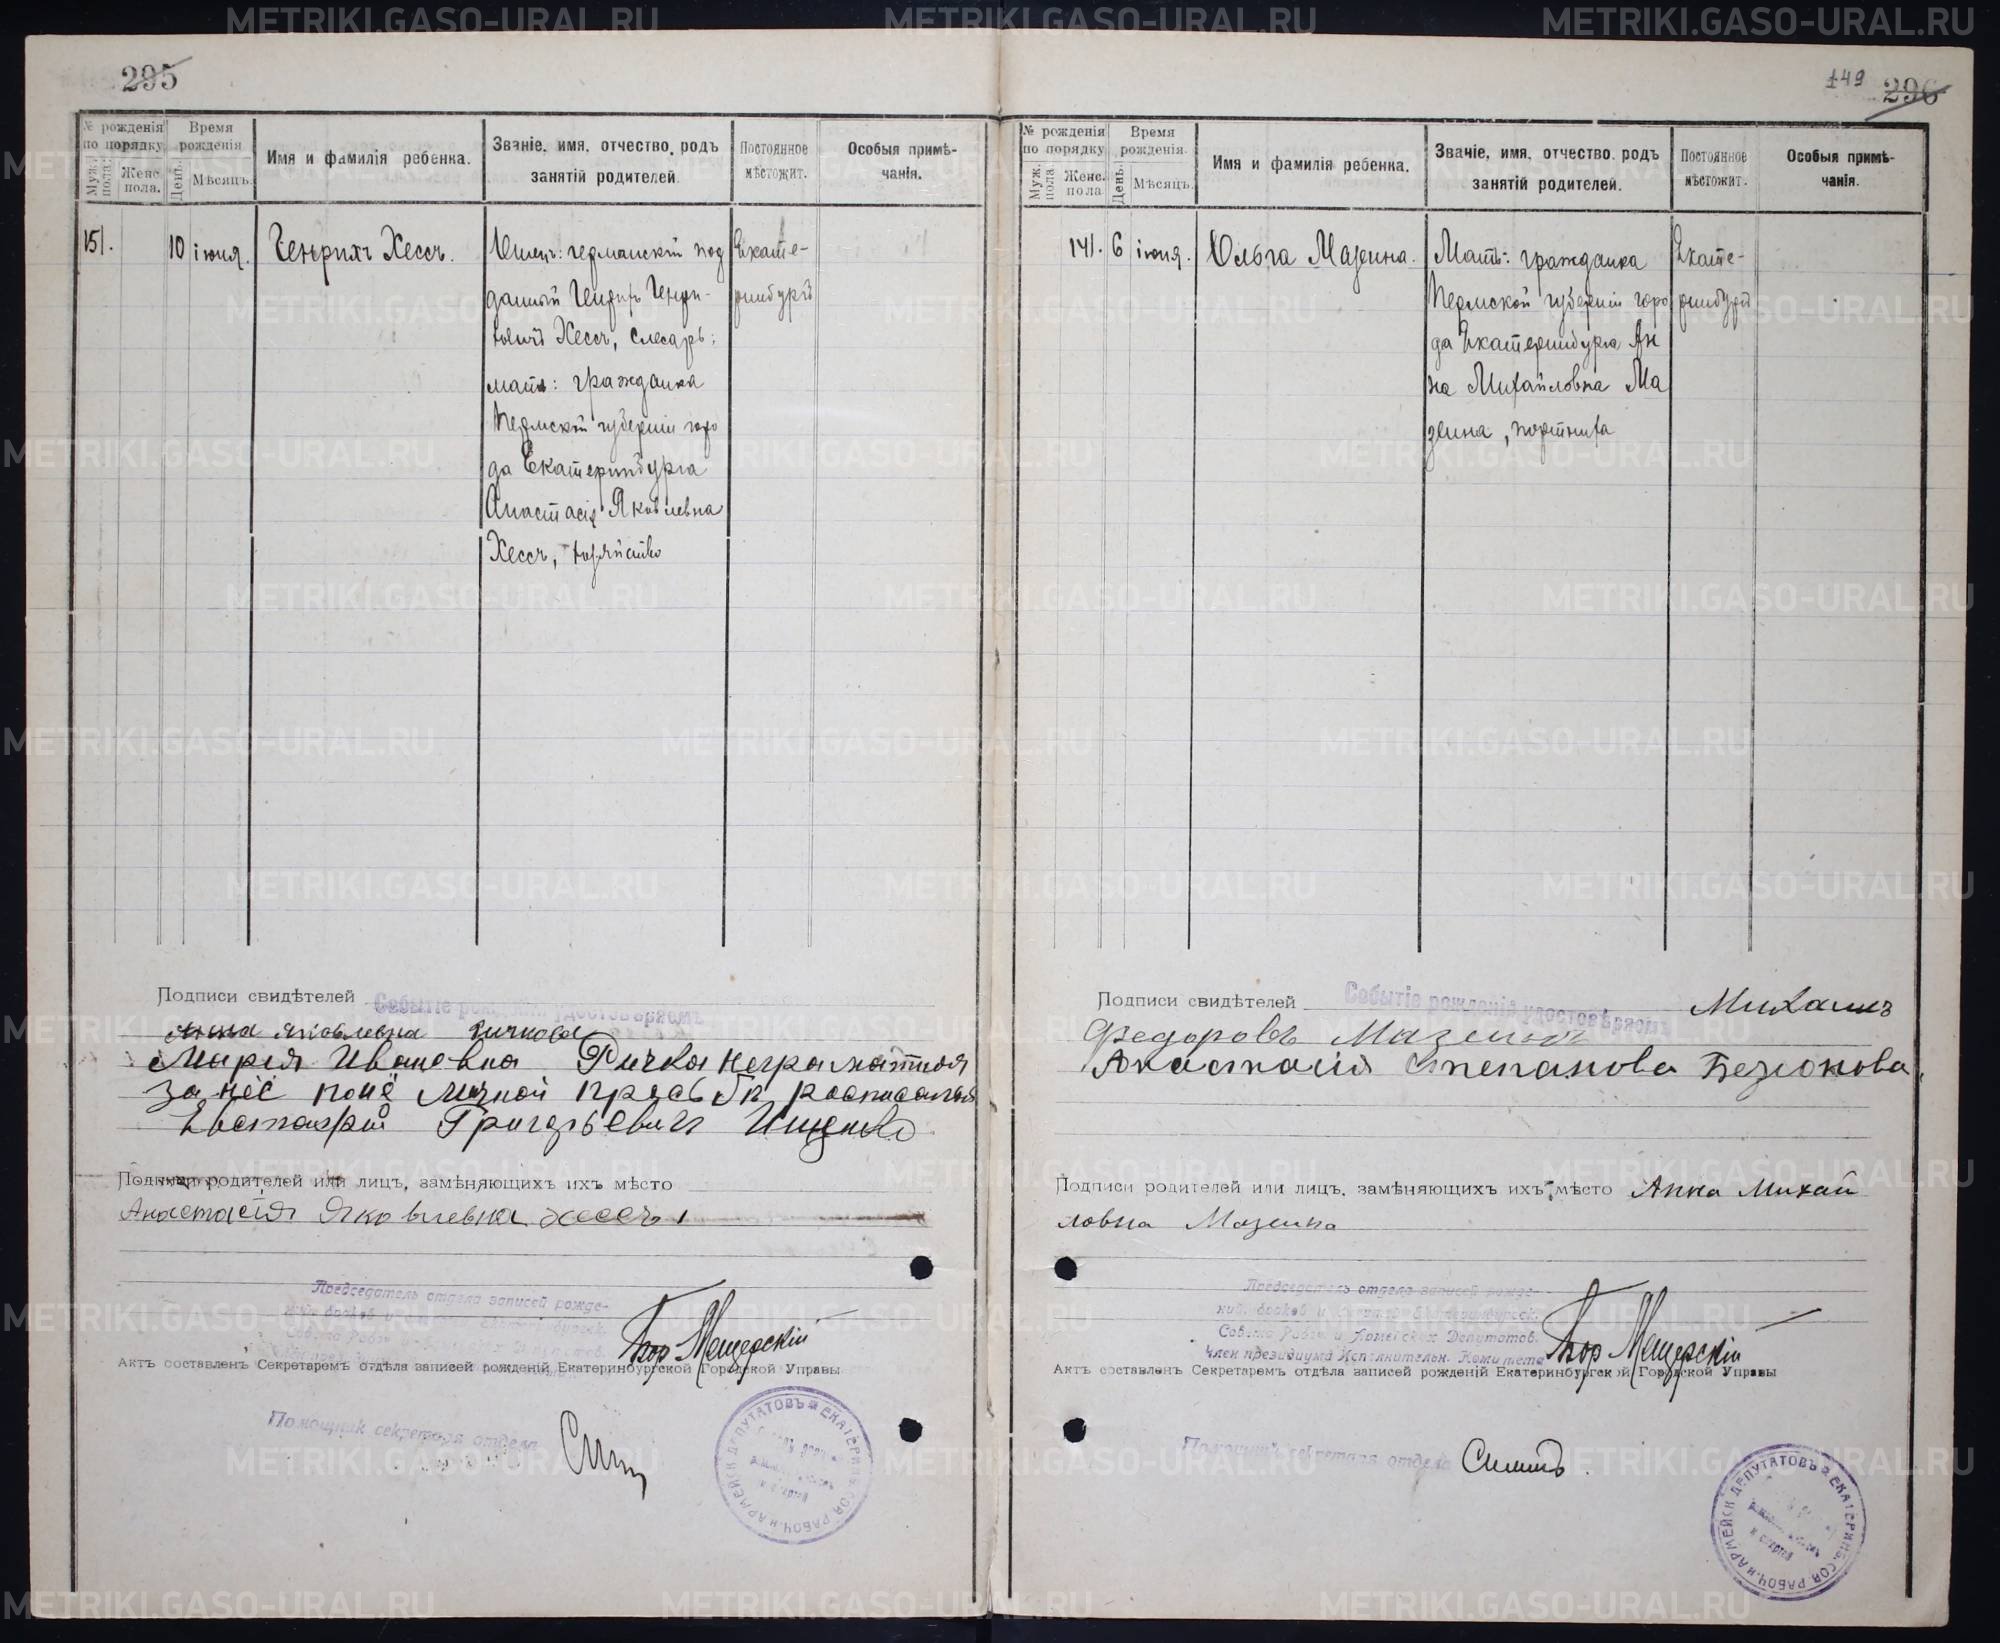 295
№ рожденія по порядку
Муж. пола.
Женс. пола.
Время рожденія
День.
Мѣсяцъ.
Имя и фамилія ребенка.
Званіе, имя, отчество, родъ
занятій родителей.
Постоянное
мѣстожит.
Особыя примѣ-
чанія.
151.
10
іюня.
Генрихъ Хессъ.
Отецъ: германскій под
данный Генрих Генри-
ховичъ Хессъ, слесарь;
мать: гражданка
Пермской губерніи горо
да Екатеринбурга
Анастасія Яковлевна
Хессъ, хозяйство
Екате-
ринбургъ
Подписи свидѣтелей
Событіе рожденій удостовѣряемъ
Анна Яковлевна
Марія Ивановна неграмотная
за неё по её личной просьбѣ росписался
Евстафій Григорьевич Ищенко
Подписи родителей или лицъ, замѣняющихъ ихъ мѣсто
Анастасія Яковлевна Хессъ
Предсѣдатель отдела записей рожде-
Актъ составленъ Секретаремъ отдѣла записей рожденій Екатеринбургской Городской Управы
Мещерскій
Помощник секретаря отдела
ЕКАТЕРИНБ. СОВ. РАБОЧ. И АРМЕЙСК. ДЕПУТАТОВЪ
149
296
№ рожденія по порядку
Муж. пола.
Женс. пола
Время рожденія.
День.
Мѣсяцъ.
Имя и фамилія ребенка.
Званіе, имя, отчество, родъ
занятій родителей.
Постоянное
мѣстожит.
Особыя примѣ-
чанія.
141.
6
іюня.
Ольга Мазеина.
Мать: гражданка
Пермской губерніи горо
да Екатеринбурга Ан
на Михайловна Ма
зеина, портниха
Екате-
ринбургъ
Подписи свидѣтелей
Событіе рожденій удостовѣряемъ
Михаилъ
Федоровъ Мазеинъ
Анастасія Степанова
Подписи родителей или лицъ, замѣняющихъ ихъ мѣсто Анна Михай
ловна Мазеина
Предсѣдатель отдела записей рожде-
ний, браков и Екатеринбургск.
Совѣта Рабоч и Армейских Депутатов.
Член президиума Исполнительн. Комитета
Мещерскій
Актъ составленъ Секретаремъ отдѣла записей рожденій Екатеринбургской Городской Управы
Помощник секретаря отдела
ЕКАТЕРИНБ. СОВ. РАБОЧ. И АРМЕЙСК. ДЕПУТАТОВЪ
METRIKI.GASO-URAL.RU